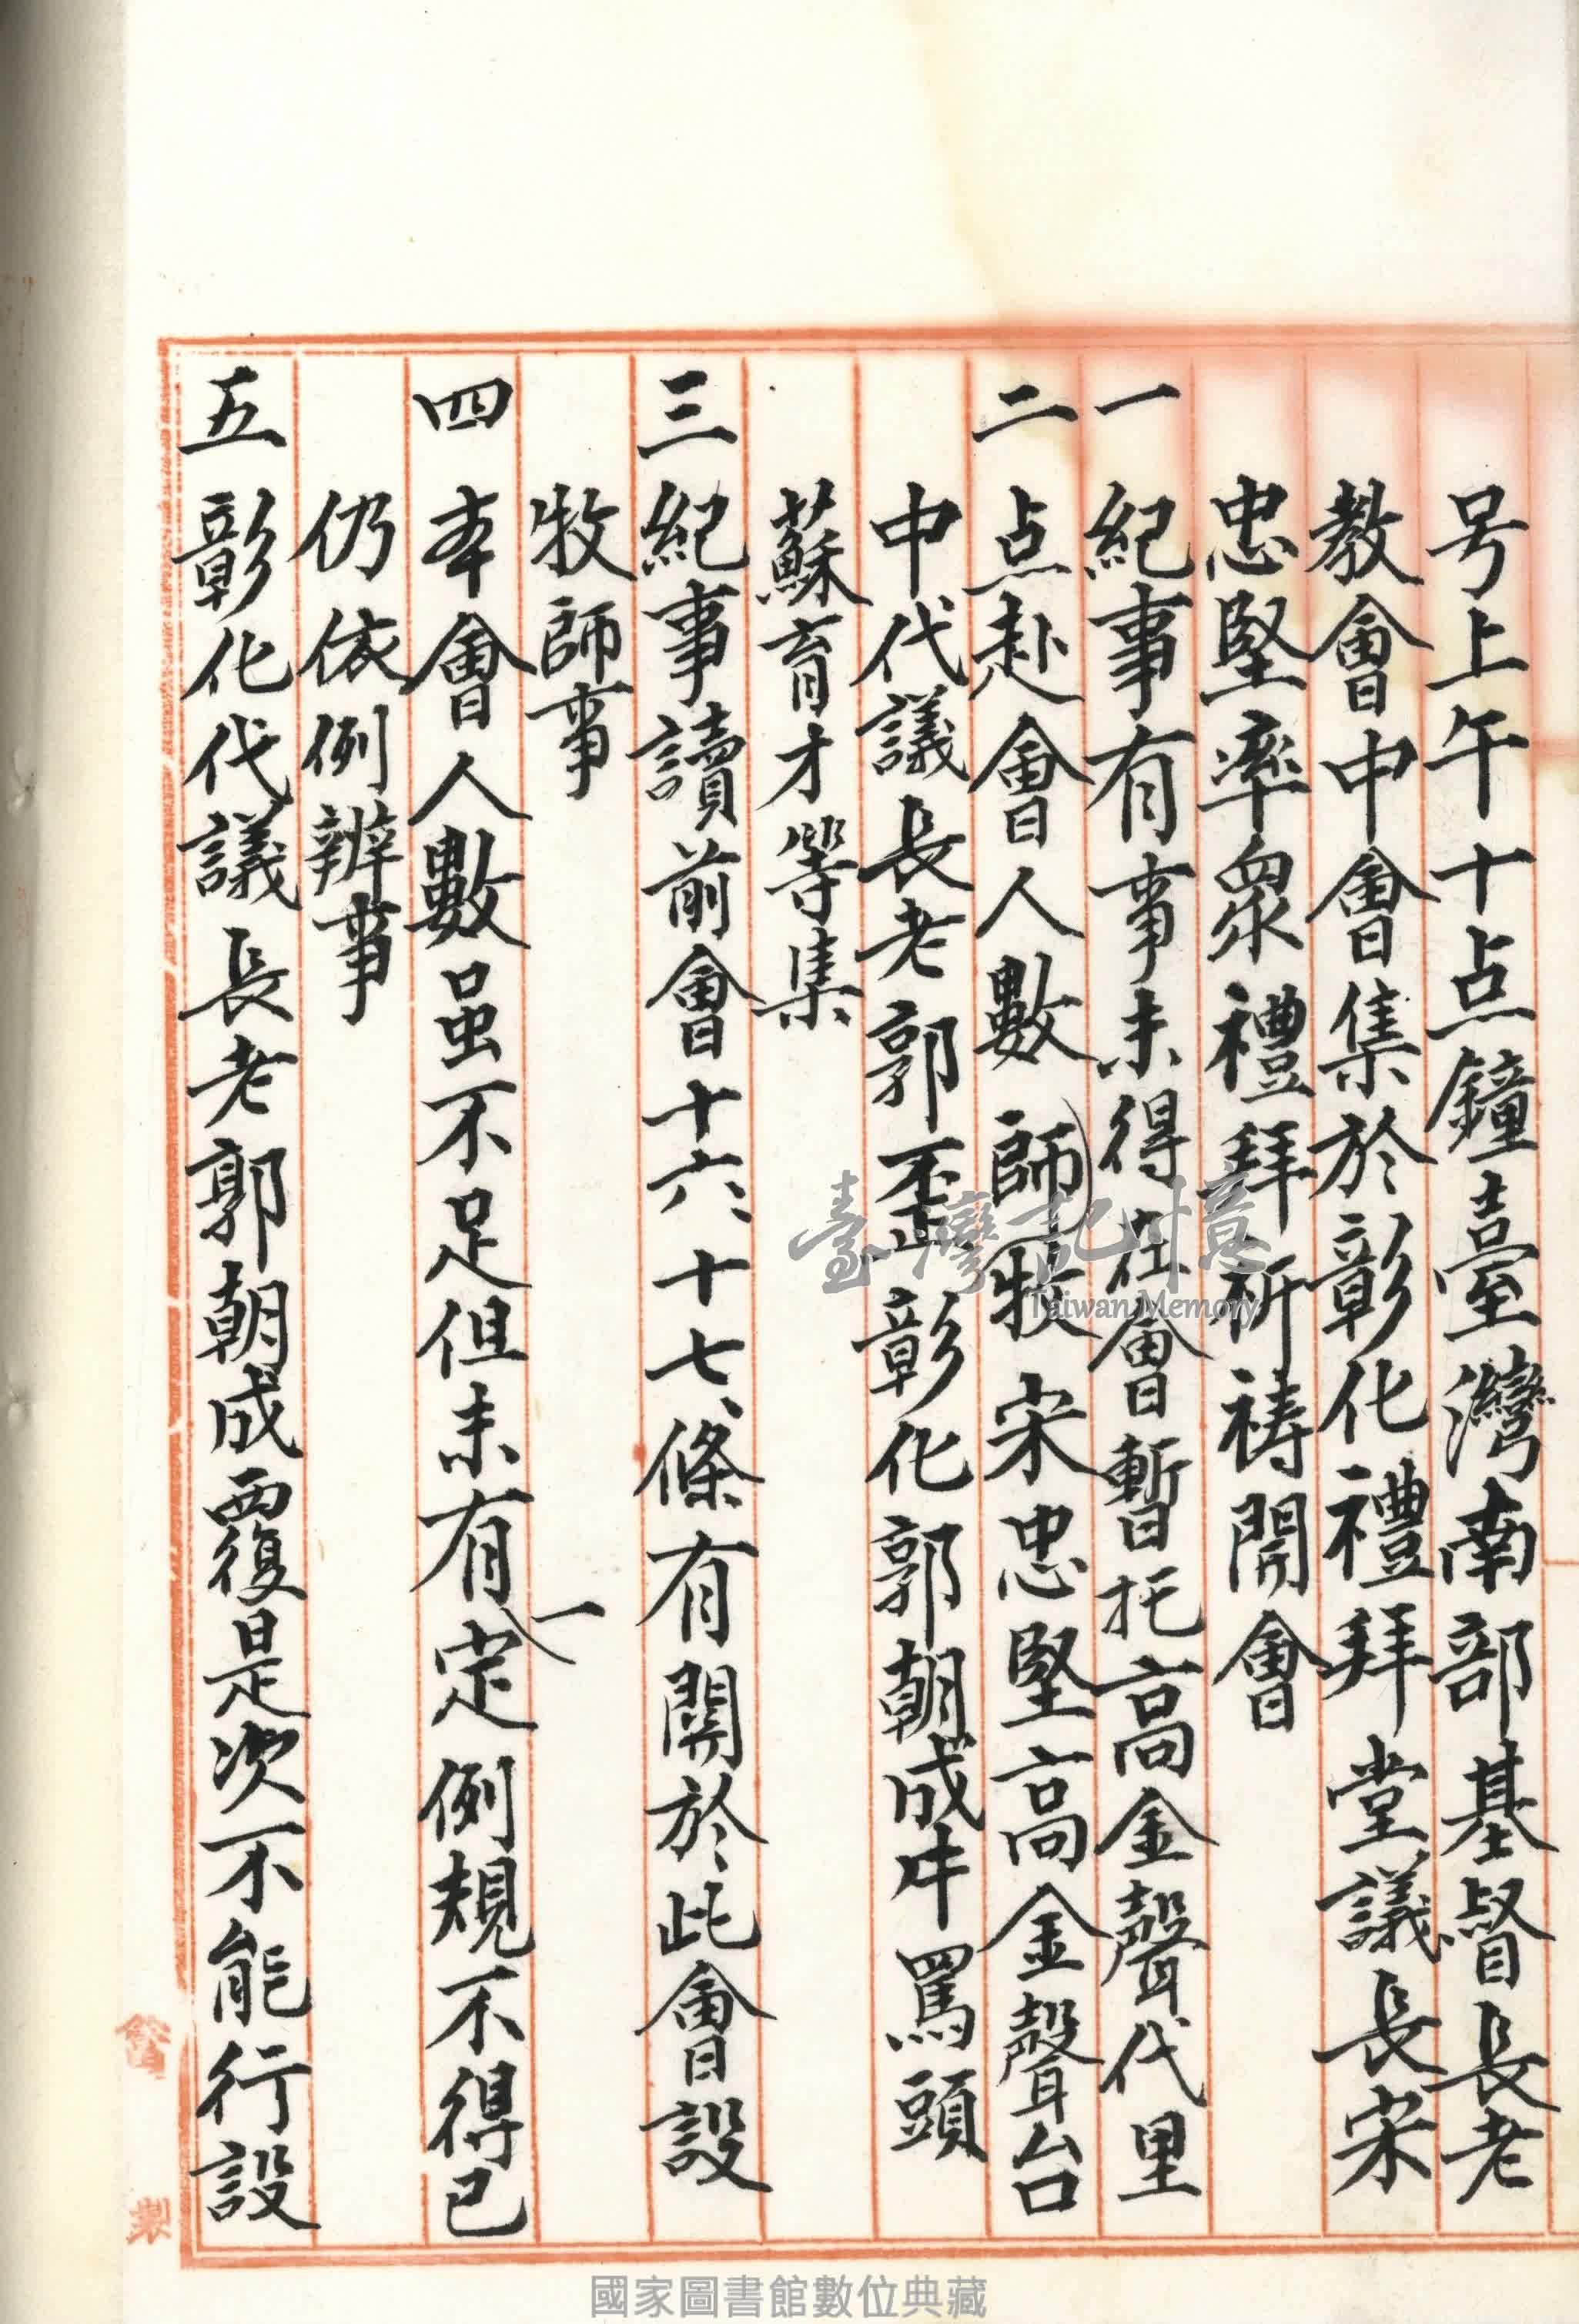 号上午十点鐘臺灣南部基督長老
教會中會集於彰化禮拜堂議長宋
忠堅率眾禮拜祈禱開會
一 紀事有事未得在會暫托高金聲代里
二 点赴會人數 師牧 宋忠堅高金聲台
中代議長老郭歪彰化郭朝成牛罵頭
蘇育才等集
三 紀事讀前會十六、十七、條有關於此會設
牧師事
四 本會人數虽不足但未有一定例規不得已
仍依例辦事
五 彰化代議長老郭朝成覆是次不能行設
臺灣記憶
Taiwan Memory
國家圖書館數位典藏